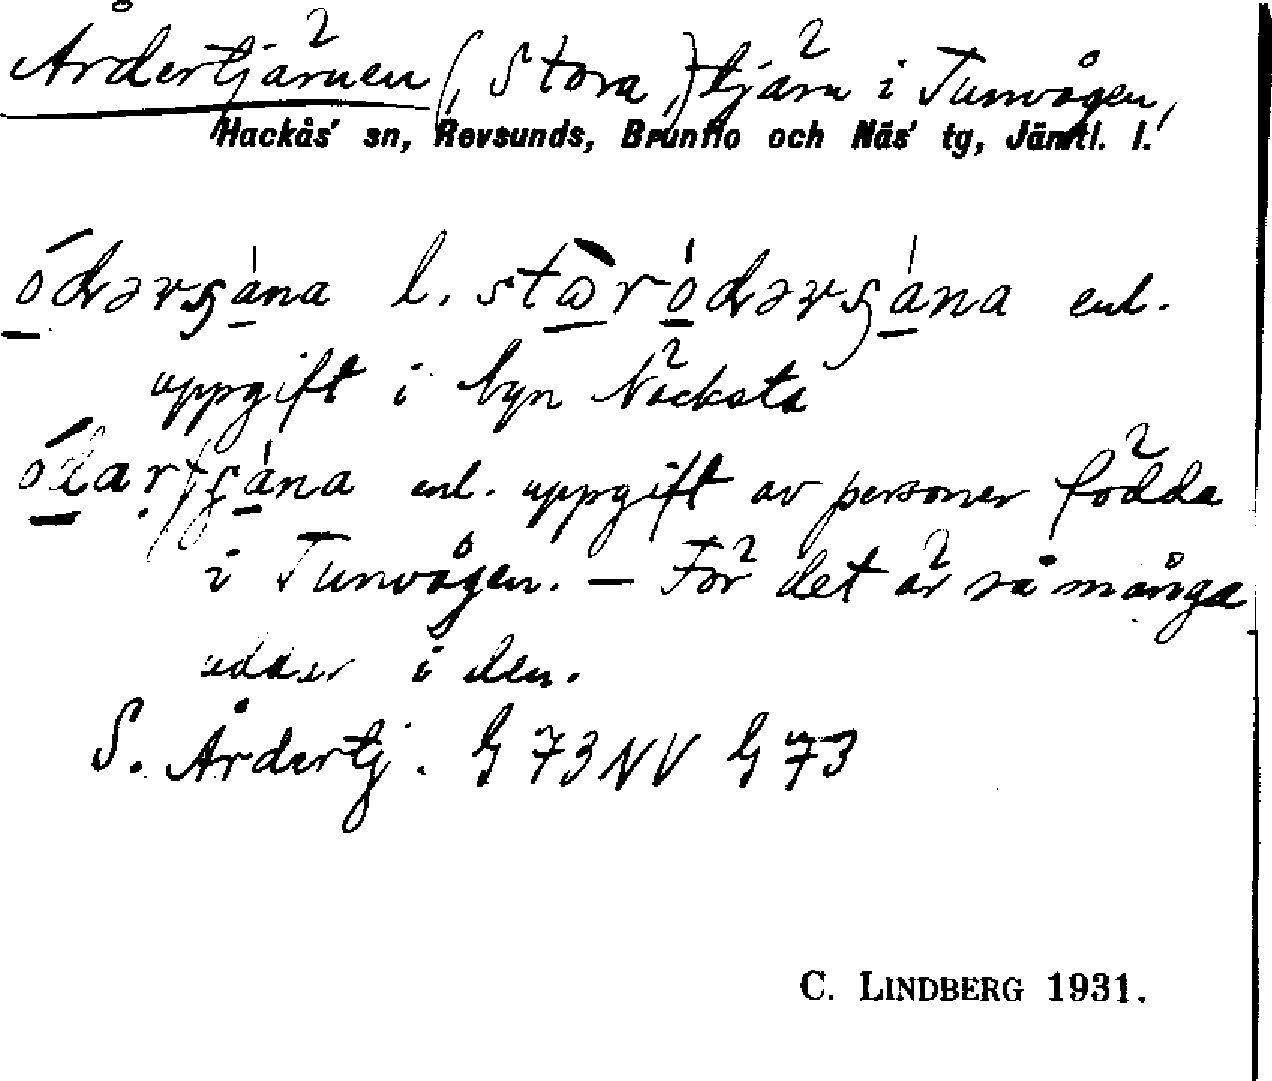 Årdertjärnen (, Stora,) tjärn i Tunvågen,
Hackås' sn, Revsunds, Brunflo och Näs' tg, Jämtl. l.
l. enl.
uppgift i byn Näcksta
enl. uppgift av personer födda
i Tunvågen. — För det är så många
uddar i den.
S. Årdertj. G 73 NV G 73
C. LINDBERG 1931.